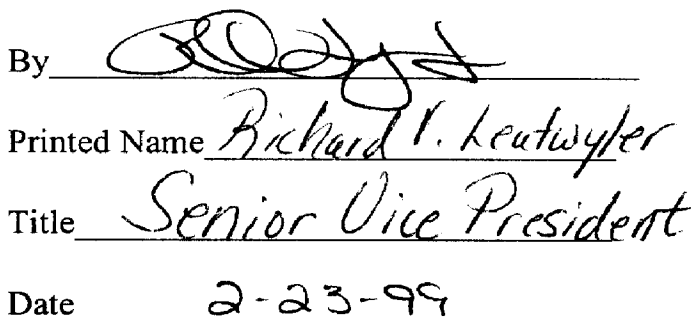 By
Printed Name Richard V. Leutwyler
Title Senior Vice President
Date 2-23-99